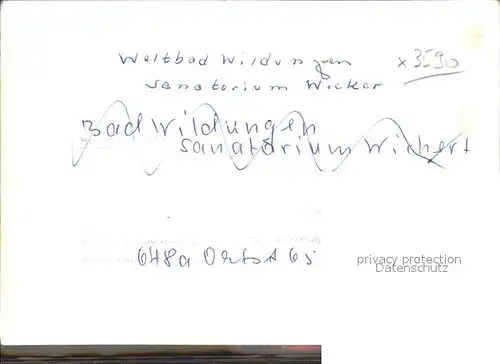 Weltbad Wildungen x 3590
Sanatorium Wicker
Bad Wildungen
Sanatorium Wichert
648a
privacy protection
Datenschutz